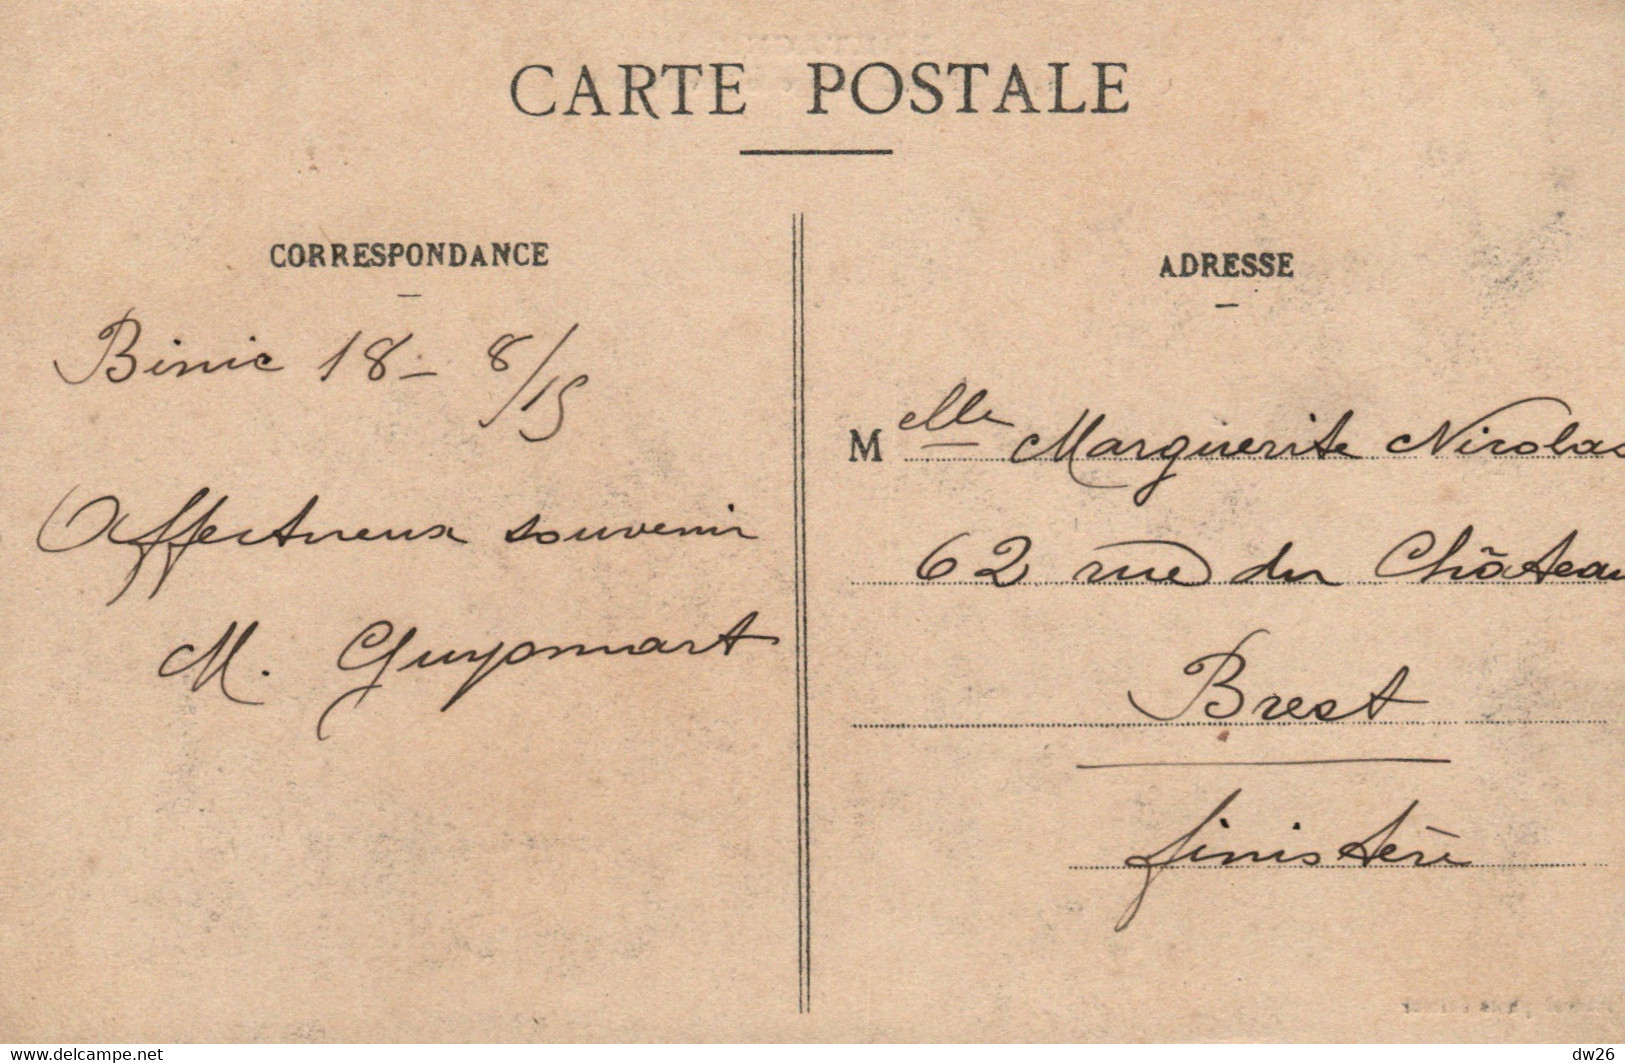 CARTE POSTALE
CORRESPONDANCE
Binic 18 - 8/15
Affectueux souvenir
M. Guyomart
ADRESSE
Melle Marguerite Nicolas
62 rue du Château
Brest
finistère
www.delcampe.net
dw26